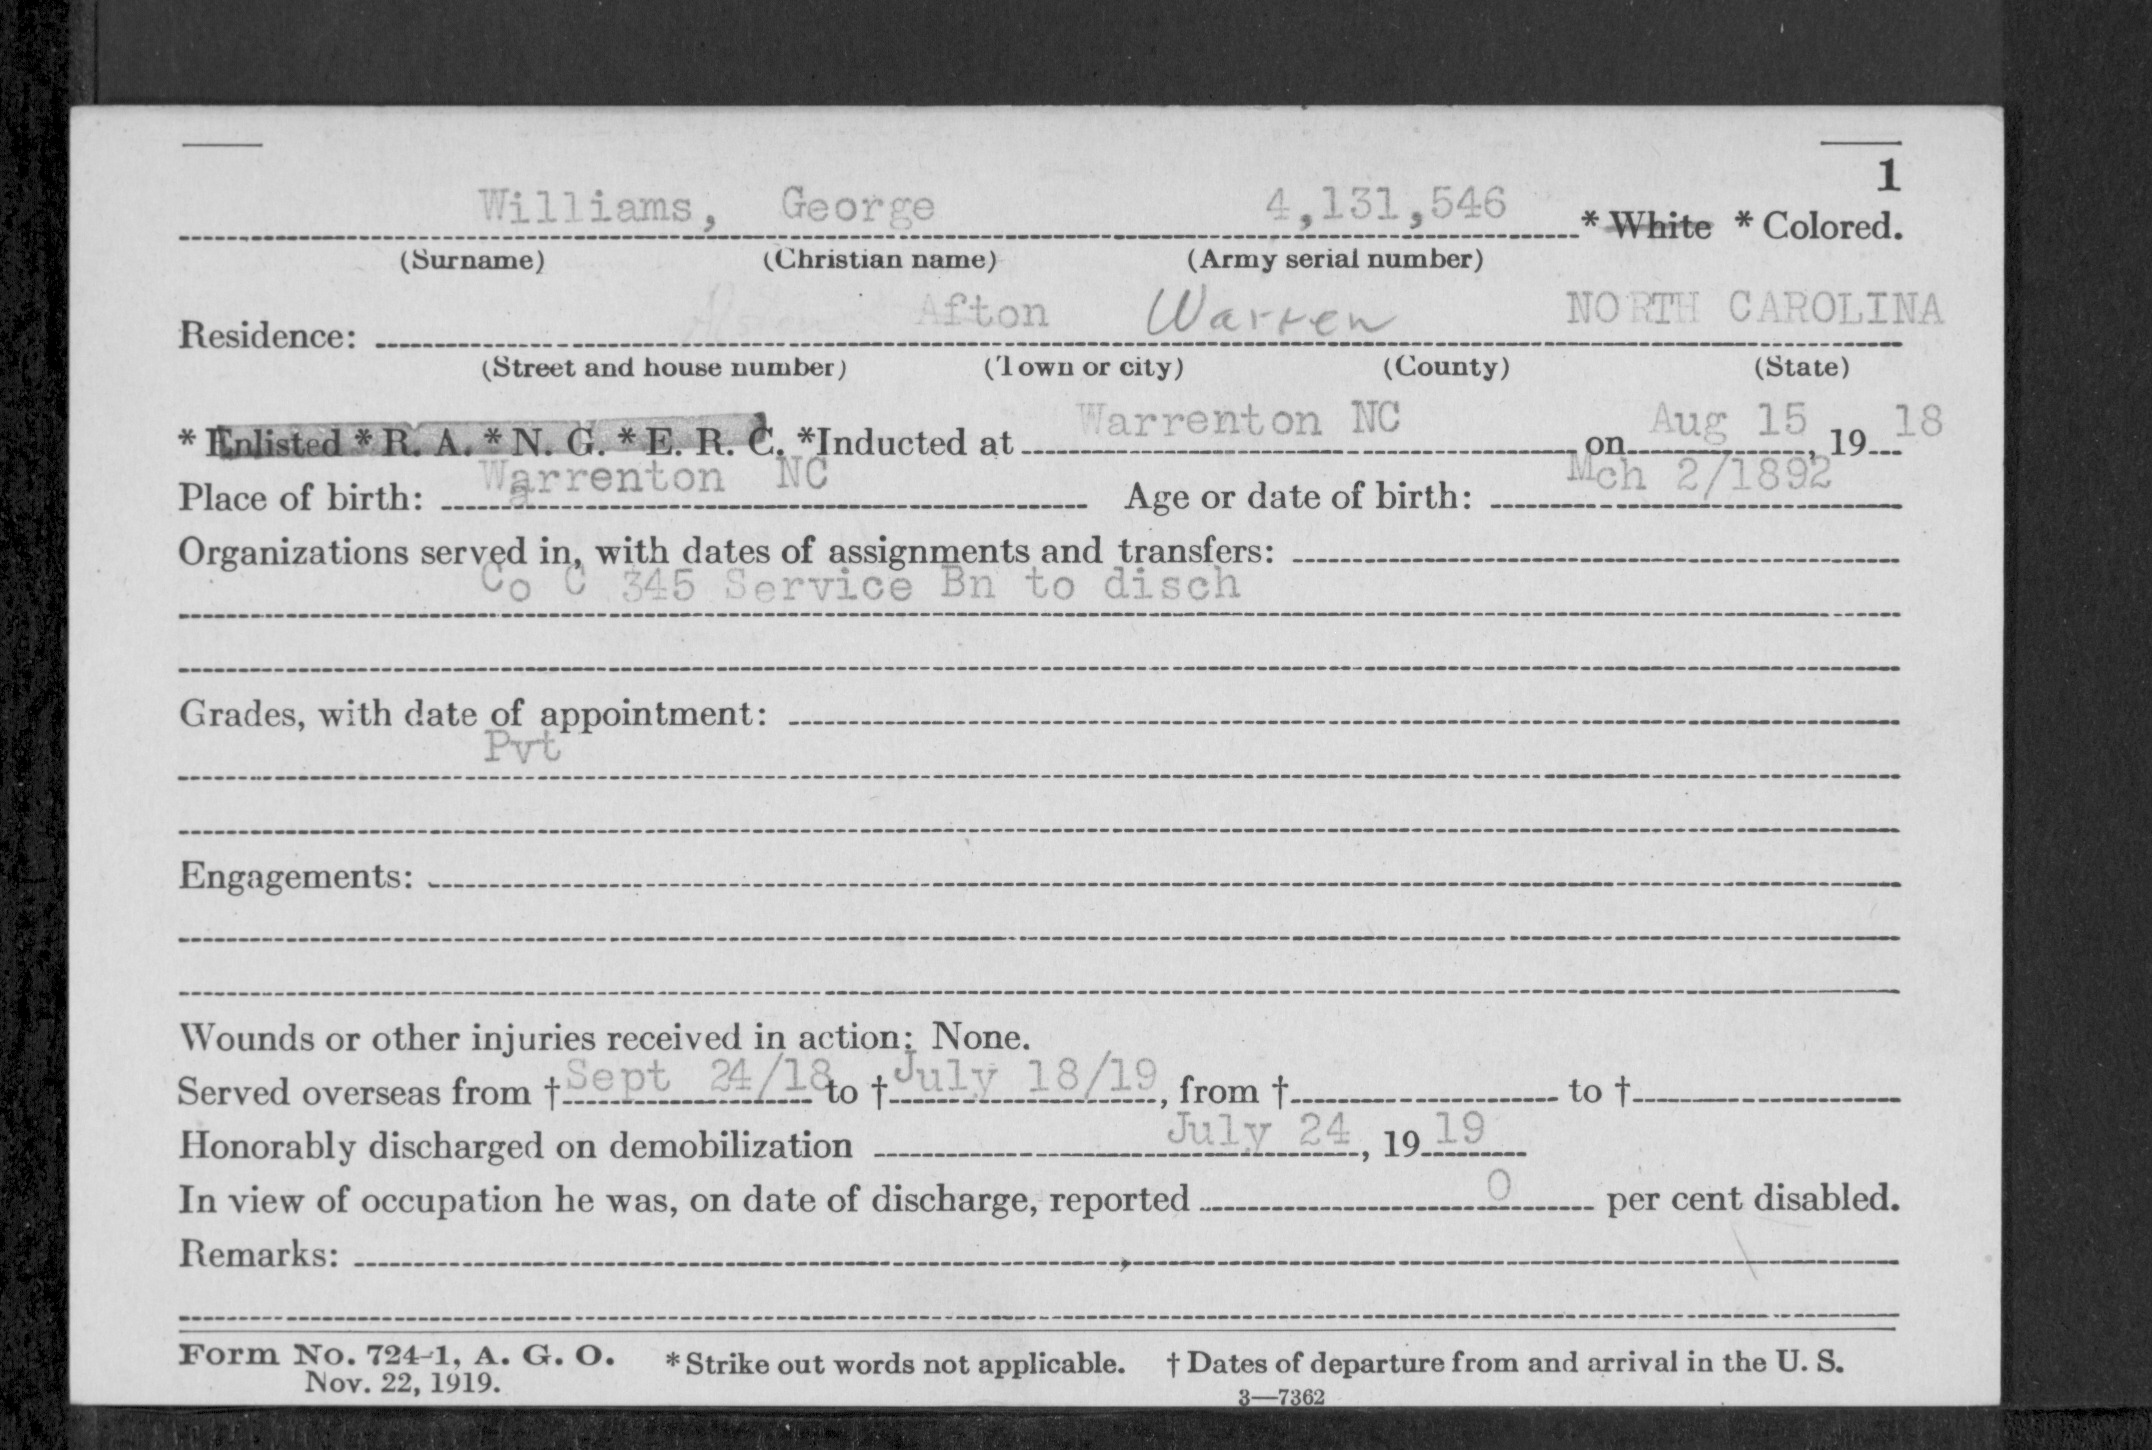 1
Williams, George 4,131,546 * White * Colored.
(Surname) (Christian name) (Army serial number)
Residence: Afton Warren NORTH CAROLINA
(Street and house number) (Town or city) (County) (State)
* Enlisted * R. A. * N. G. * E. R. C. *Inducted at Warrenton NC on Aug 15, 19 18
Place of birth: Warrenton NC Age or date of birth: Mch 2/1892
Organizations served in, with dates of assignments and transfers:
Co C 345 Service Bn to disch
Grades, with date of appointment:
Pvt
Engagements:
Wounds or other injuries received in action: None.
Served overseas from † Sept 24/18 to † July 18/19, from † to †
Honorably discharged on demobilization July 24, 19 19
In view of occupation he was, on date of discharge, reported 0 per cent disabled.
Remarks:
Form No. 724-1, A. G. O. * Strike out words not applicable. † Dates of departure from and arrival in the U. S.
Nov. 22, 1919.
3—7362